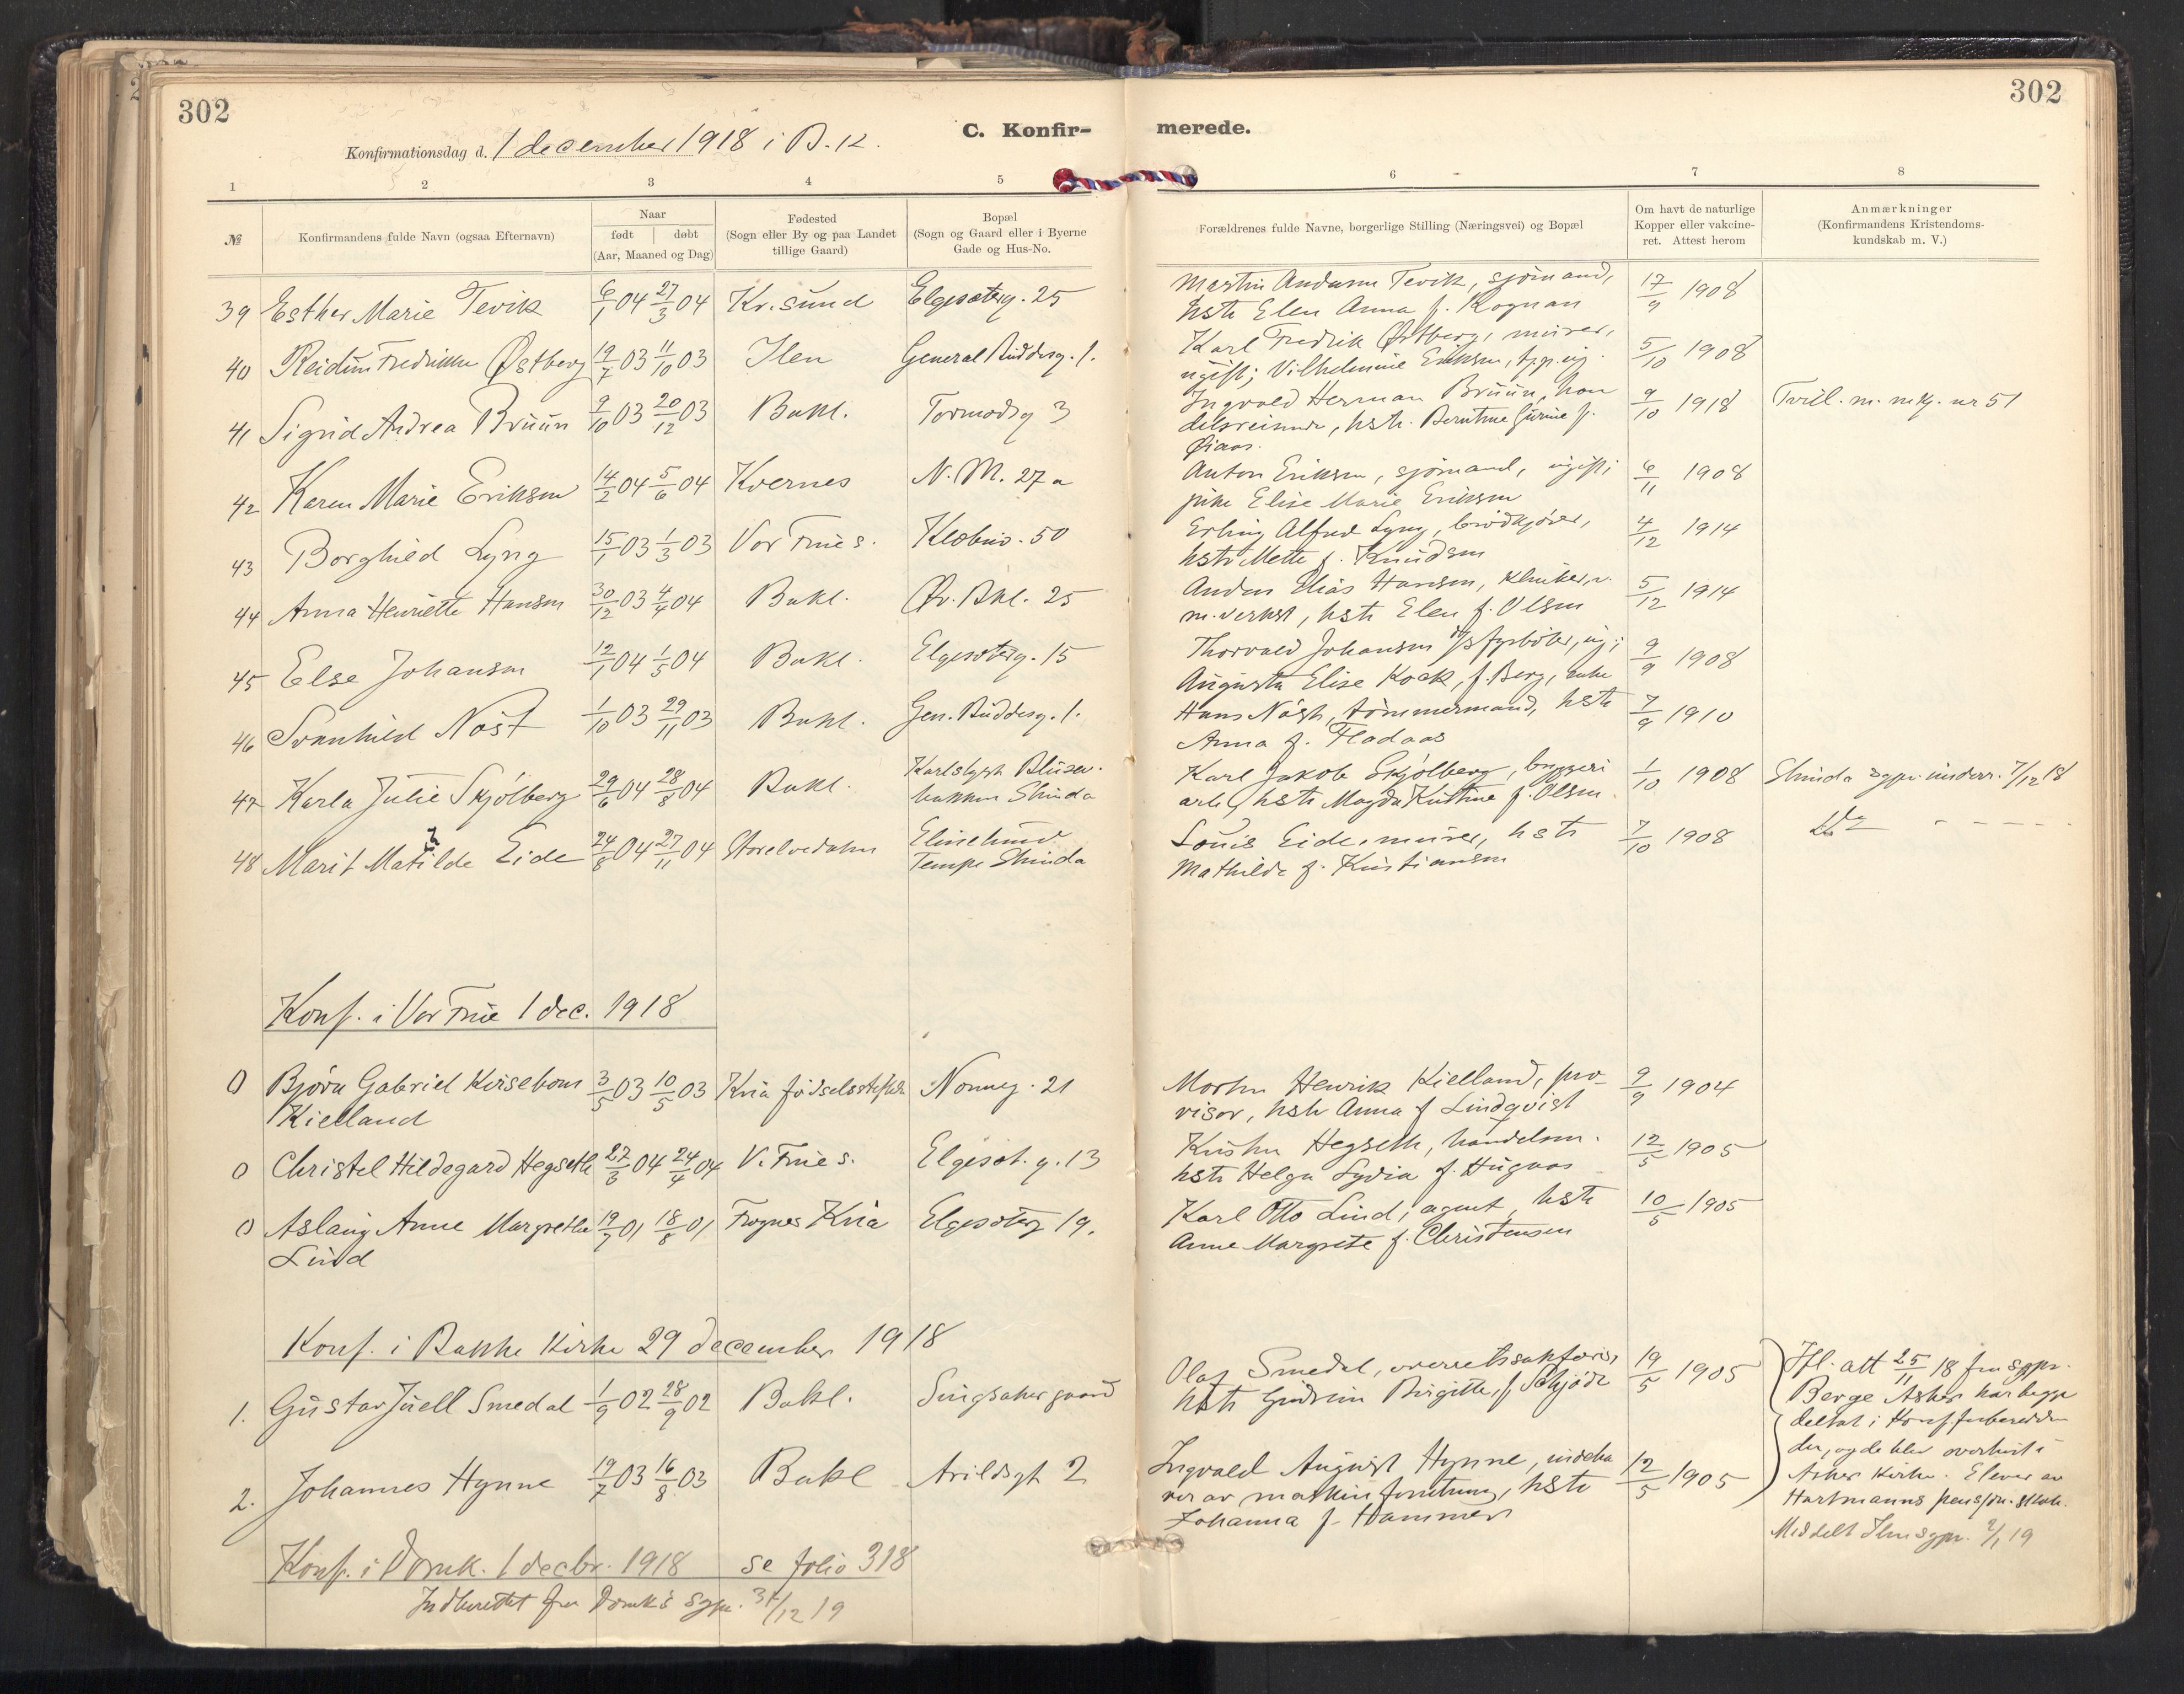 302
302
C. Konfir-
merede.
Konfirmationsdag d. 1 december 1918 i B. K.
1 2 3 4 5 6 7 8
№
Konfirmandens fulde Navn (ogsaa Efternavn)
Naar
født | døbt
(Aar, Maaned og Dag)
Fødested
(Sogn eller By og paa Landet
tillige Gaard)
Bopæl
(Sogn og Gaard eller i Byerne
Gade og Hus-No.
Forældrenes fulde Navne, borgerlige Stilling (Næringsvei) og Bopæl
Om havt de naturlige
Kopper eller vakcine-
ret. Attest herom
Anmærkninger
(Konfirmandens Kristendoms-
kundskab m. V.)
39 Esther Marie Tevik 6/1 04 27/3 04 Kr.sund Elgesæterg. 25
Martin Andersen Tevik, sjømand, 17/9 1908
hstr Elen Anna f. Rognan
40 Reidun Fredrikke Østberg 19/7 03 11/10 03 Ilen General Buddesg. 1.
Karl Fredrik Østberg, murer, 5/10 1908
ugift; Vilhelmine Eriksen,
41 Sigrid Andrea Bruun 9/10 03 20/12 03 Bakl. Tormodsg 3
Ingvald Herman Bruun, han 9/10 1918 Tvill. m. mkg. nr 51
delsreisende, hstr. Berntine Gurine f.
Øiaas.
42 Karen Marie Eriksen 14/2 04 5/6 04 Kvernes N. M. 27 a
Anton Eriksen, sjømand, ugift; 6/11 1908
pike Elise Marie Eriksen
43 Borghild Lyng 15/1 03 1/3 03 Vor Frues. Klæbuv. 50
Erling Alfred Lyng, brødkjører, 4/12 1914
hstr Mette f. Knudsen
44 Anna Henriette Hansen 30/12 03 4/4 04 Bakl. Øv. Bkl. 25
Anders Elias Hansen, 5/12 1914
m. verkst, hstr Elen f. Olsen
45 Else Johansen 12/1 04 1/5 04 Bakl. Elgesæterg. 15
Thorvald Johansen d/s fyrbøter, ug; 9/9 1908
Augusta Elise Kock, f. Berg, enke
46 Svanhild Nøst 1/10 03 29/11 03 Bakl. Gen. Buddesg. 1.
Hans Nøst, tømmermand, hstr 7/9 1910
Anna f. Fladaas
47 Karla Julie Skjølberg 29/6 04 28/8 04 Bakl. Karlslyst Blusev.
bakken Strinda
Karl Jakob Skjølberg, bryggeri 1/10 1908 Strinda sgpr. underr. 7/12 18
arb., hstr Magda Kristine f. Olsen
48 Marit Matilde Eide 24/8 04 27/11 04 Storelvedalen Elinelund
Tempe Strinda
Louis Eide, murer, hstr 7/10 1908 do - - - -
Mathilde f. Kristiansen
Konf. i Vor Frue 1 dec. 1918
0 Bjørn Gabriel Kirsebom 3/5 03 10/5 03 Kria fødselsstiftelse Nonneg. 21
Kielland
Morten Henrik Kielland, pro- 9/9 1904
visor, hstr Anna f Lindqvist
0 Christel Hildegard Hegseth 27/3 04 24/4 04 V. Frues. Elgesæt. g. 13
Kristen Hegseth, handelsm. 12/5 1905
hstr Helga Lydia f. Hugaas
0 Aslaug Anne Margrethe 19/7 01 18/8 01 Frogner Kria Elgesæterg 19.
Lind
Karl Otto Lind, agent, hstr 10/5 1905
Anne Margrete f. Christensen
Konf. i Bakke Kirke 29 december 1918
1. Gustav Juell Smedal 1/9 02 28/9 02 Bakl. Singsaker gaard
Olaf Smedal, overretssakfører, 19/5 1905
hstr Gudrun Birgitte, f Schjøde
Ifl. att 25/11 18 fra sgpr.
Berge Asker har begge
deltat i Konf. forbereddn
der, og de blev overhørt i
Asker Kirke. Elever av
Hartmanns pensjon. skole.
Meddelt Ilens sgpr. 2/1 19
2. Johannes Hynne 19/7 03 16/8 03 Bakl Arildsgt 2
Ingvald August Hynne, indeha 12/5 1905
ver av maskin forretning, hstr
Johanna f. Hammer
Konf. i Domk. 1 decbr. 1918 se folio 318
Indberettet fra Domk's sgpr. 31/12 19